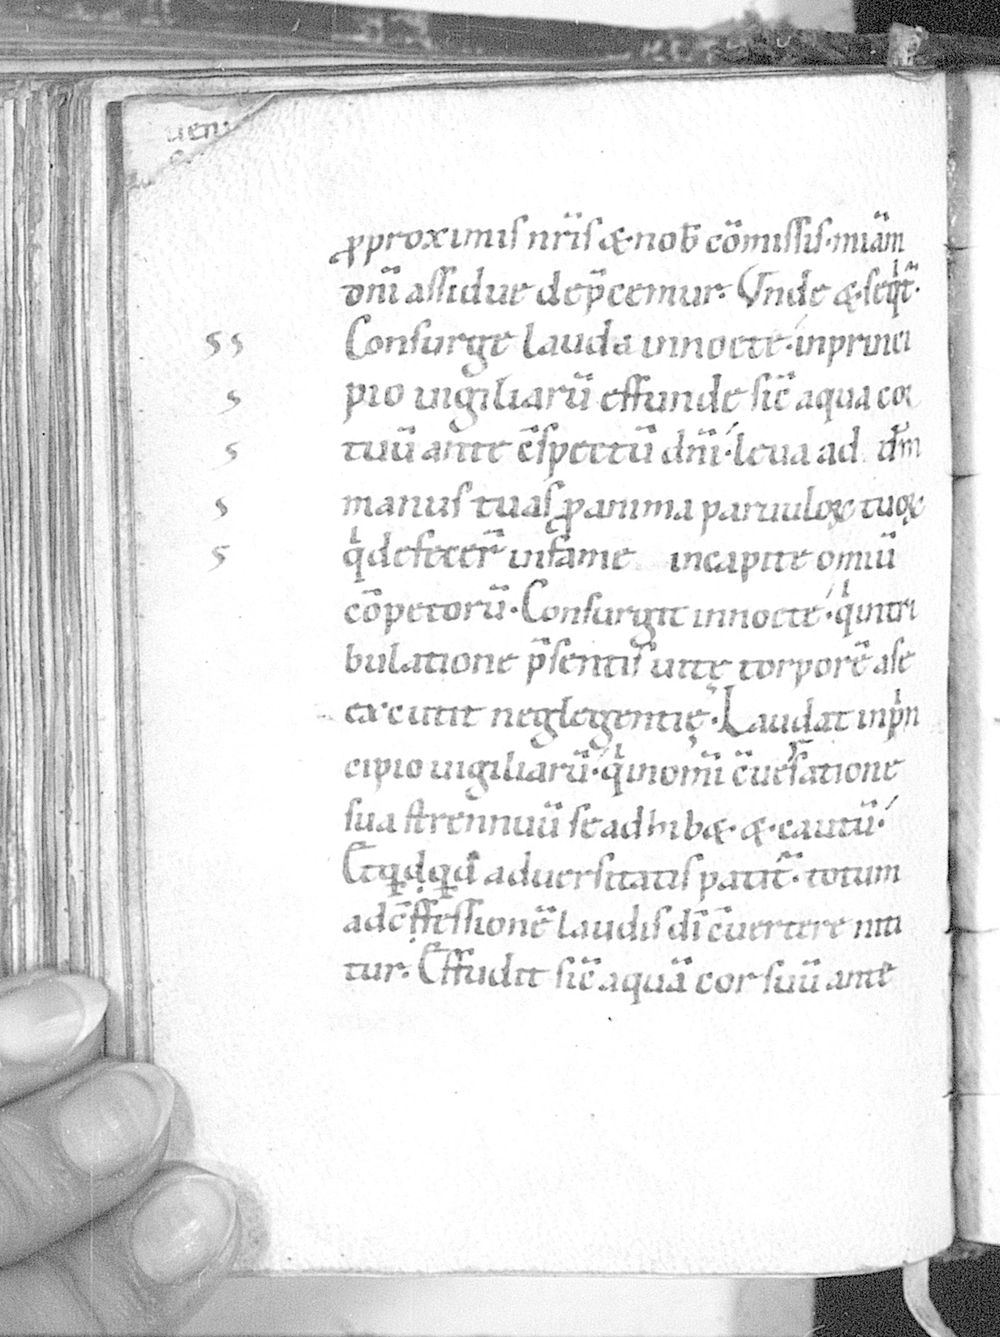 uen
ꝓproximis nr̄is &. nob̄ cōmissis. miām
dn̄i assidue dep̄cemur. Vnde &. seqͥt̄.
Consurge lauda innocte. inprinci
pio uigiliarū effunde sic̄ aqua cor
tuū ante c̄spectū dn̄i. leua ad dm̄
manus tuas ꝓ anima paruuloꝝ tuoꝝ
qͥ defecer̄ infame incapite omiū
cōpetorū. Consurgit innocte. qͥ intri
bulatione p̄sentis uitę torporē a se
excutit neglegentię. Laudat inpͥn
cipio uigiliarū. qͥ inomī c̄uersatione
sua strennuū se adhib&. &. cautū.
Et qͥdqͥd aduersitatis patit̄. totum
ad c̄fessionē laudis dī c̄uertere niti
tur. Effudit sic̄ aquā cor suū ante